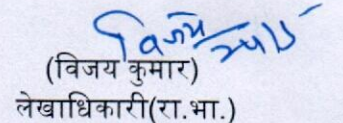 विजय कुमार
(विजय कुमार)
लेखाधिकारी(रा.भा.)